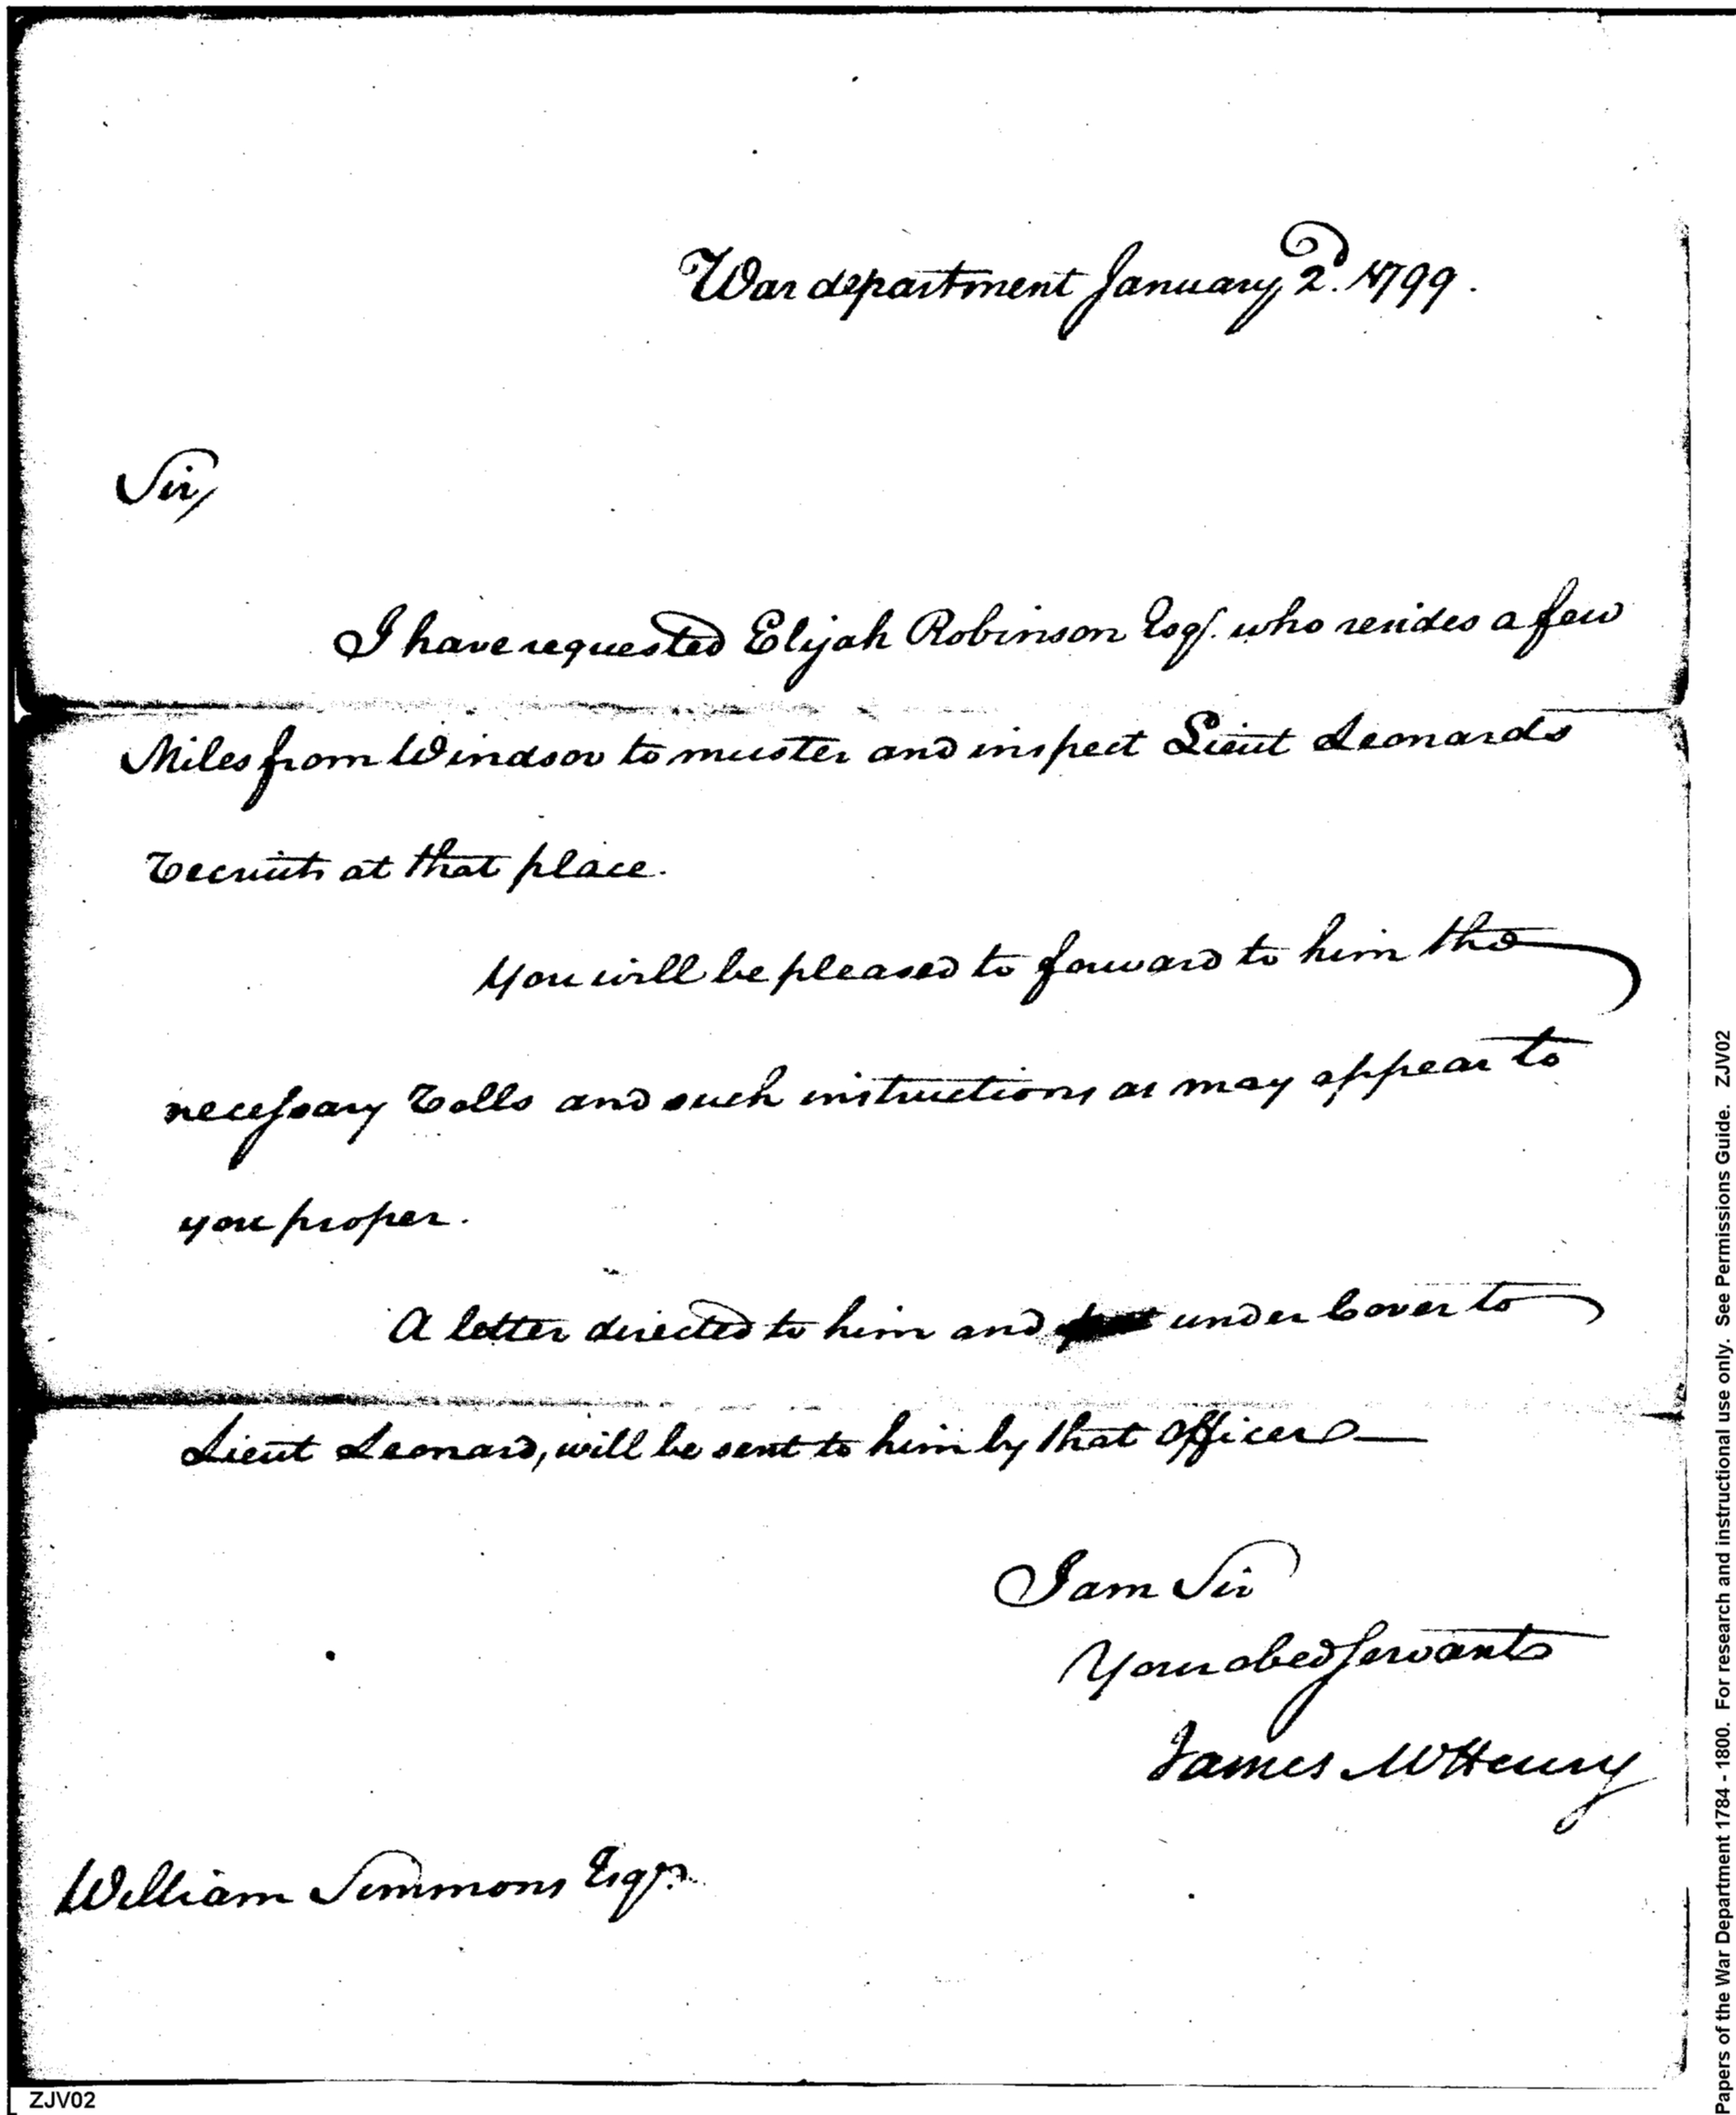 War department January 2d. 1799.
Sir,
I have requested Elijah Robinson Esqr. who resides a few
Miles from Windsor to muster and inspect Lieut Leonards
Recruits at that place.
You will be pleased to forward to him the
necessary Rolls and such instructions as may appear to
you proper.
A letter directed to him and under Cover to
Lieut Leonard, will be sent to him by that Officer
I am Sir
Your obed Servant
James McHenry
William Simmons Esqr.
ZJV02
Papers of the War Department 1784 - 1800. For research and instructional use only. See Permissions Guide. ZJV02